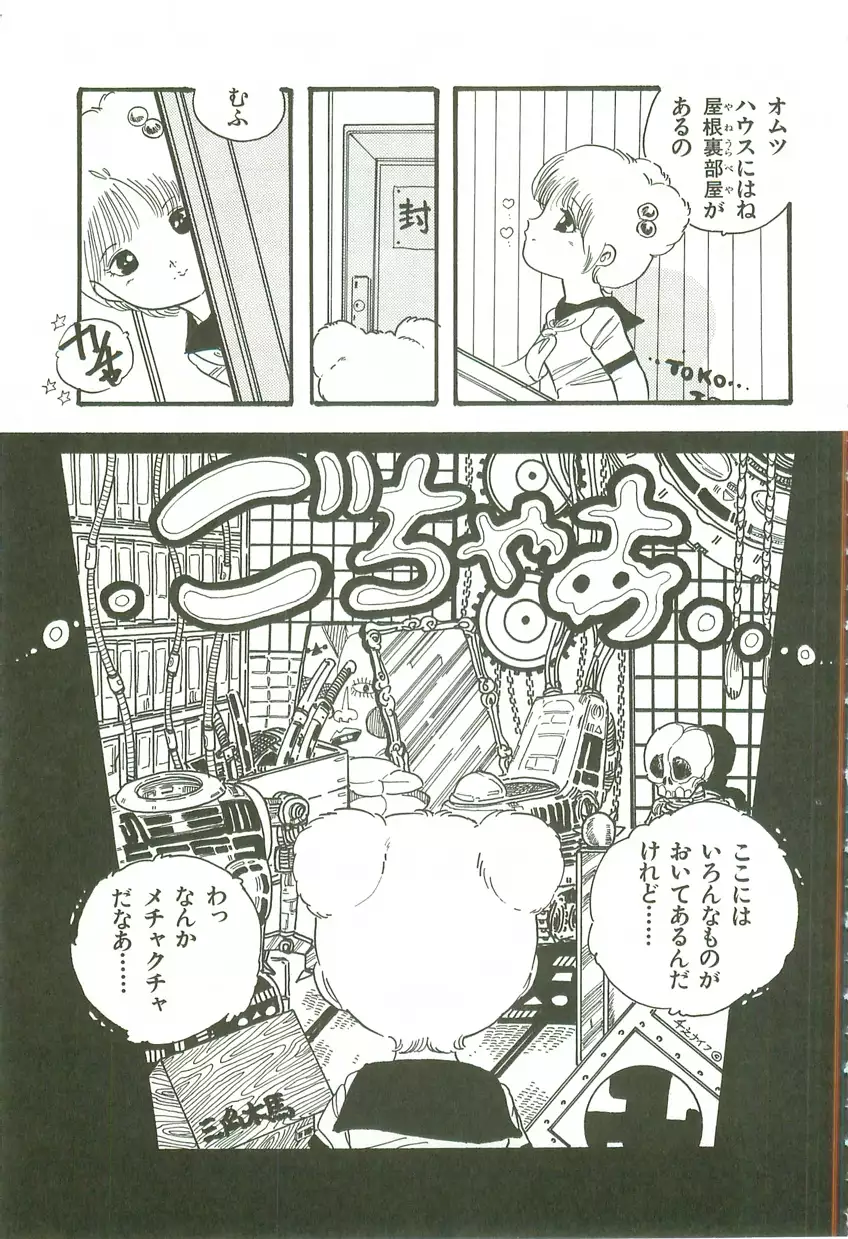 オムツ
ハウスにはね
屋根裏部屋が
やねうらべや
あるの
..TOKO...
封
むふ
ごちゃあ
ここには
いろんなものが
おいてあるんだ
けれど……
わっ
なんか
メチャクチャ
だなあ……
三角木馬